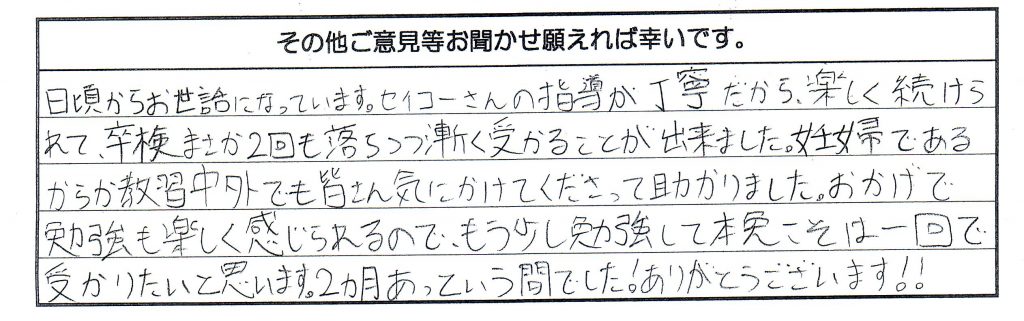 その他ご意見等お聞かせ願えれば幸いです。
日頃からお世話になっています。セイコーさんの指導が丁寧だから、楽しく続けら
れて、卒検まさか2回も落ちつつ漸く受かることが出来ました。妊婦である
からか教習中外でも皆さん気にかけてくださって助かりました。おかげで
勉強も楽しく感じられるので、もう少し勉強して本免こそは一回で
受かりたいと思います。2カ月あっという間でした!ありがとうございます!!